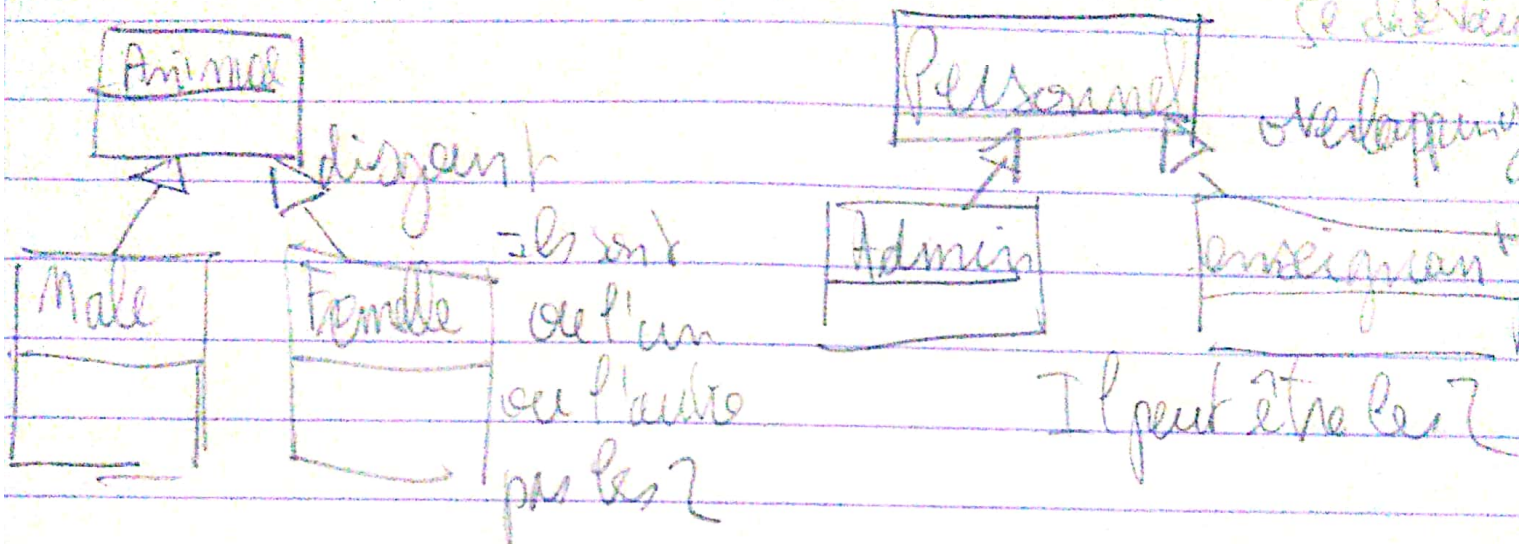 Animal
disjoint
Male
Femelle
ils sont
ou l'un
ou l'autre
pas les 2
Personnel
overlapping
Admin
enseignant
Il peut être les 2